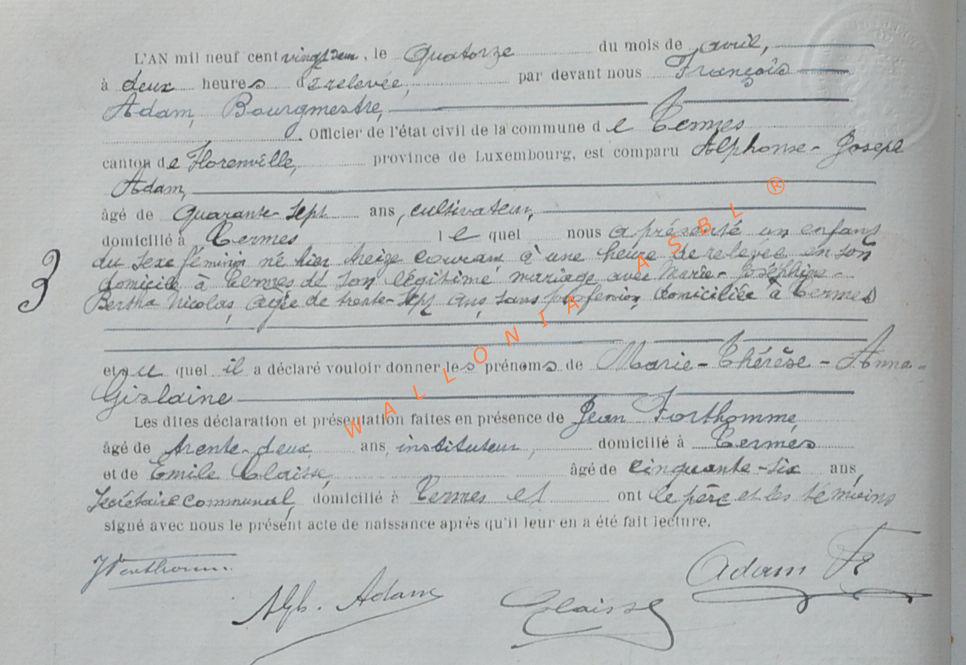 L'AN mil neuf cent vingt deux, le Quatorze du mois de avril,
à deux heures de relevée, par devant nous François
Adam, Bourgmestre,
Officier de l'état civil de la commune de Termes
canton de Florenville, province de Luxembourg, est comparu Alphonse-Joseph
Adam,
âgé de Quarante-sept ans, cultivateur,
domicilié à Termes lequel nous a présenté un enfant
du sexe féminin né hier treize courant à une heure de relevée en son
domicile à Termes de son légitime mariage avec Marie-Joséphine-
Bertha Nicolas, agée de trente-sept ans, sans profession, domiciliée à Termes
3
et au quel il a déclaré vouloir donner les prénoms de Marie-Thérèse-Anna-
Gislaine
Les dites déclaration et présentation faites en présence de Jean Forthomme,
âgé de trente-deux ans, instituteur, domicilié à Termes
et de Emile Claisse, âgé de cinquante-six ans,
Secrétaire communal, domicilié à Termes et ont le père et les témoins
signé avec nous le présent acte de naissance après qu'il leur en a été fait lecture.
WALLONIA ASBL ®
JForthomme
Alph. Adam
Claisse
Adam Fr